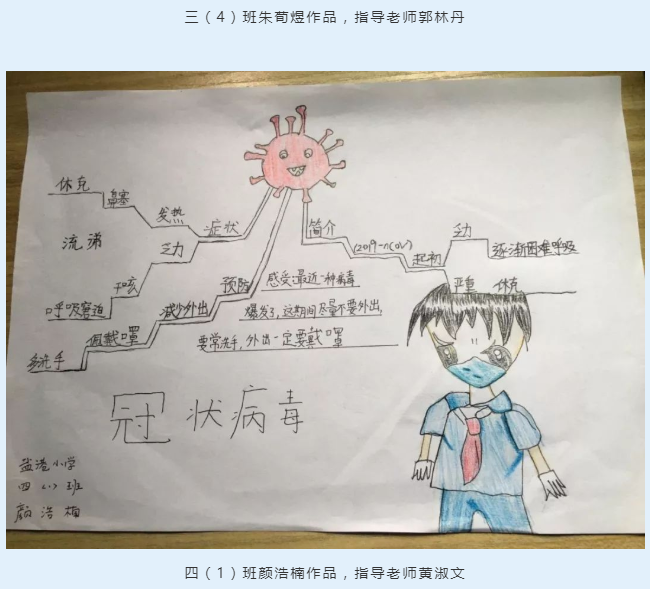 三（4）班朱荀煜作品，指导老师郭林丹
休克
鼻塞
发热
症状
流涕
乏力
咳
呼吸窘迫
简介
(2019-nCoV)
起初
乏力
逐渐困难呼吸
严重
休克
预防
减少外出
佩戴口罩
多洗手
感受:最近一种病毒
爆发了,这期间尽量不要外出,
要常洗手,外出一定要戴口罩
冠状病毒
盐港小学
四（1）班
颜浩楠
四（1）班颜浩楠作品，指导老师黄淑文